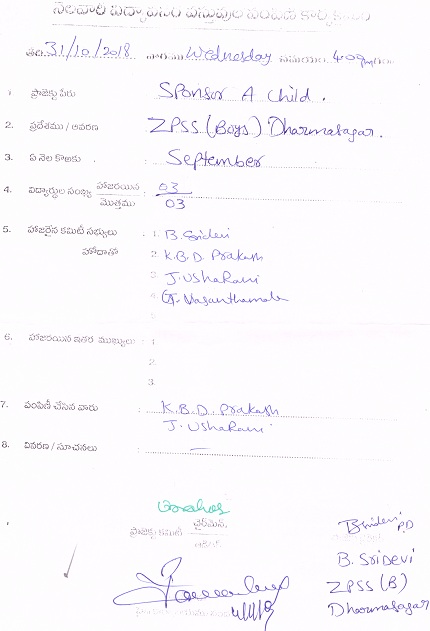 నెలవారీ విద్యాపసర వస్తువుల పంపిణీ కార్యక్రమం
తేది 31/10/2018 వారము Wednesday సమయం 4.00pm
1. ప్రాజెక్టు పేరు : Sponsor A Child.
2. ప్రదేశము / ఆవరణ : ZPSS (Boys) Dharmasagar.
3. ఏ నెల కొఱకు : September
4. విద్యార్థుల సంఖ్య హాజరయిన : 03
మొత్తము 03
5. హాజరైన కమిటీ సభ్యులు : 1. B. Sridevi
హోదాతో 2. K.B.D. Prakash
3. J. UshaRani
4. G. Vasanthamala
5.
6. హాజరయిన ఇతర ముఖ్యులు : 1.
2.
3.
7. పంపిణీ చేసిన వారు : K.B.D. Prakash
J. UshaRani
8. వివరణ / సూచనలు : —
ప్రాజెక్టు కమిటీ చైర్‌మెన్,
BSridevi PD
B. SriDevi
ZPSS (B)
Dharmasagar